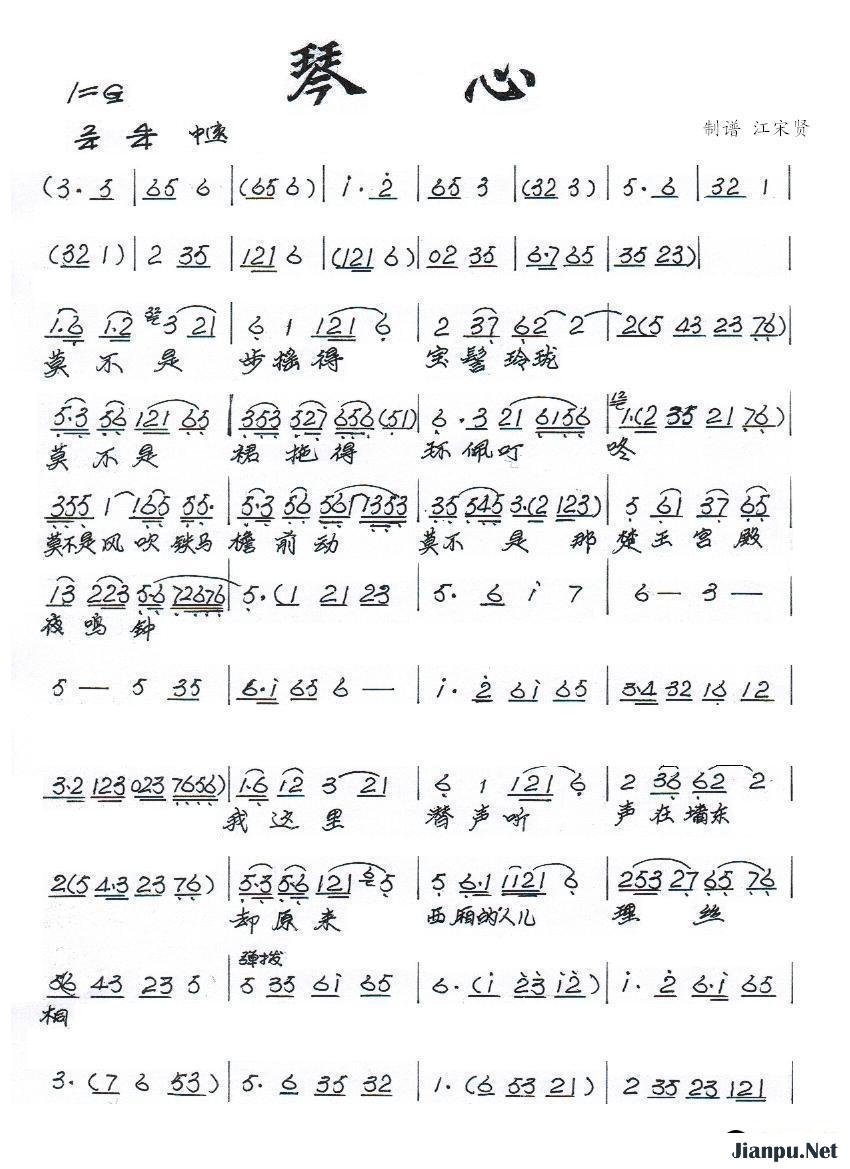 琴 心
1=G
2/4 4/4 中速
制谱 江宋贤
(3· 5 | 65 6 | (65 6) | i· 2 | 65 3 | (32 3) | 5· 6 | 32 1 |
(32 1) | 2 35 | 121 6 | (121 6) | 02 35 | 6·7 65 | 35 23) |
1·6 1·2 3 21 | 6 1 121 6 | 2 37 62 2 | 2(5 43 23 76) |
莫 不 是 步摇得 宝髻玲珑
5·3 56 121 65 | 353 527 656 (51) | 6· 3 21 6156 | 1·(2 35 21 76) |
莫 不 是 裙拖得 环佩叮 咚
355 1 165 55· | 5·3 56 561 7353 | 35 545 3·(2 123) | 5 61 37 65 |
莫不是风吹铁马 檐前动 莫不是那 楚王宫殿
13 223 5·6 72676 | 5·(1 21 23 | 5· 6 i 7 | 6 — 3 — |
夜鸣钟
5 — 5 35 | 6·i 65 6 — | i· 2 6i 65 | 3·4 32 16 12 |
3·2 123 023 7656) | 1·6 12 3 21 | 6 1 121 6 | 2 36 62 2 |
我这里 声听 声在墙东
2(5 4·3 23 76) | 5·3 5·6 121 5 | 5 6·1 1121 6 | 253 27 65 76 |
却原来 西厢的人儿 理 丝
弹拨
56 43 23 5 | 5 35 6i 65 | 6·(i 23 i2) | i· 2 6·i 65 |
桐
3·(7 6 53) | 5· 6 35 32 | 1·(6 53 21) | 2 35 23 121 |
Jianpu.Net